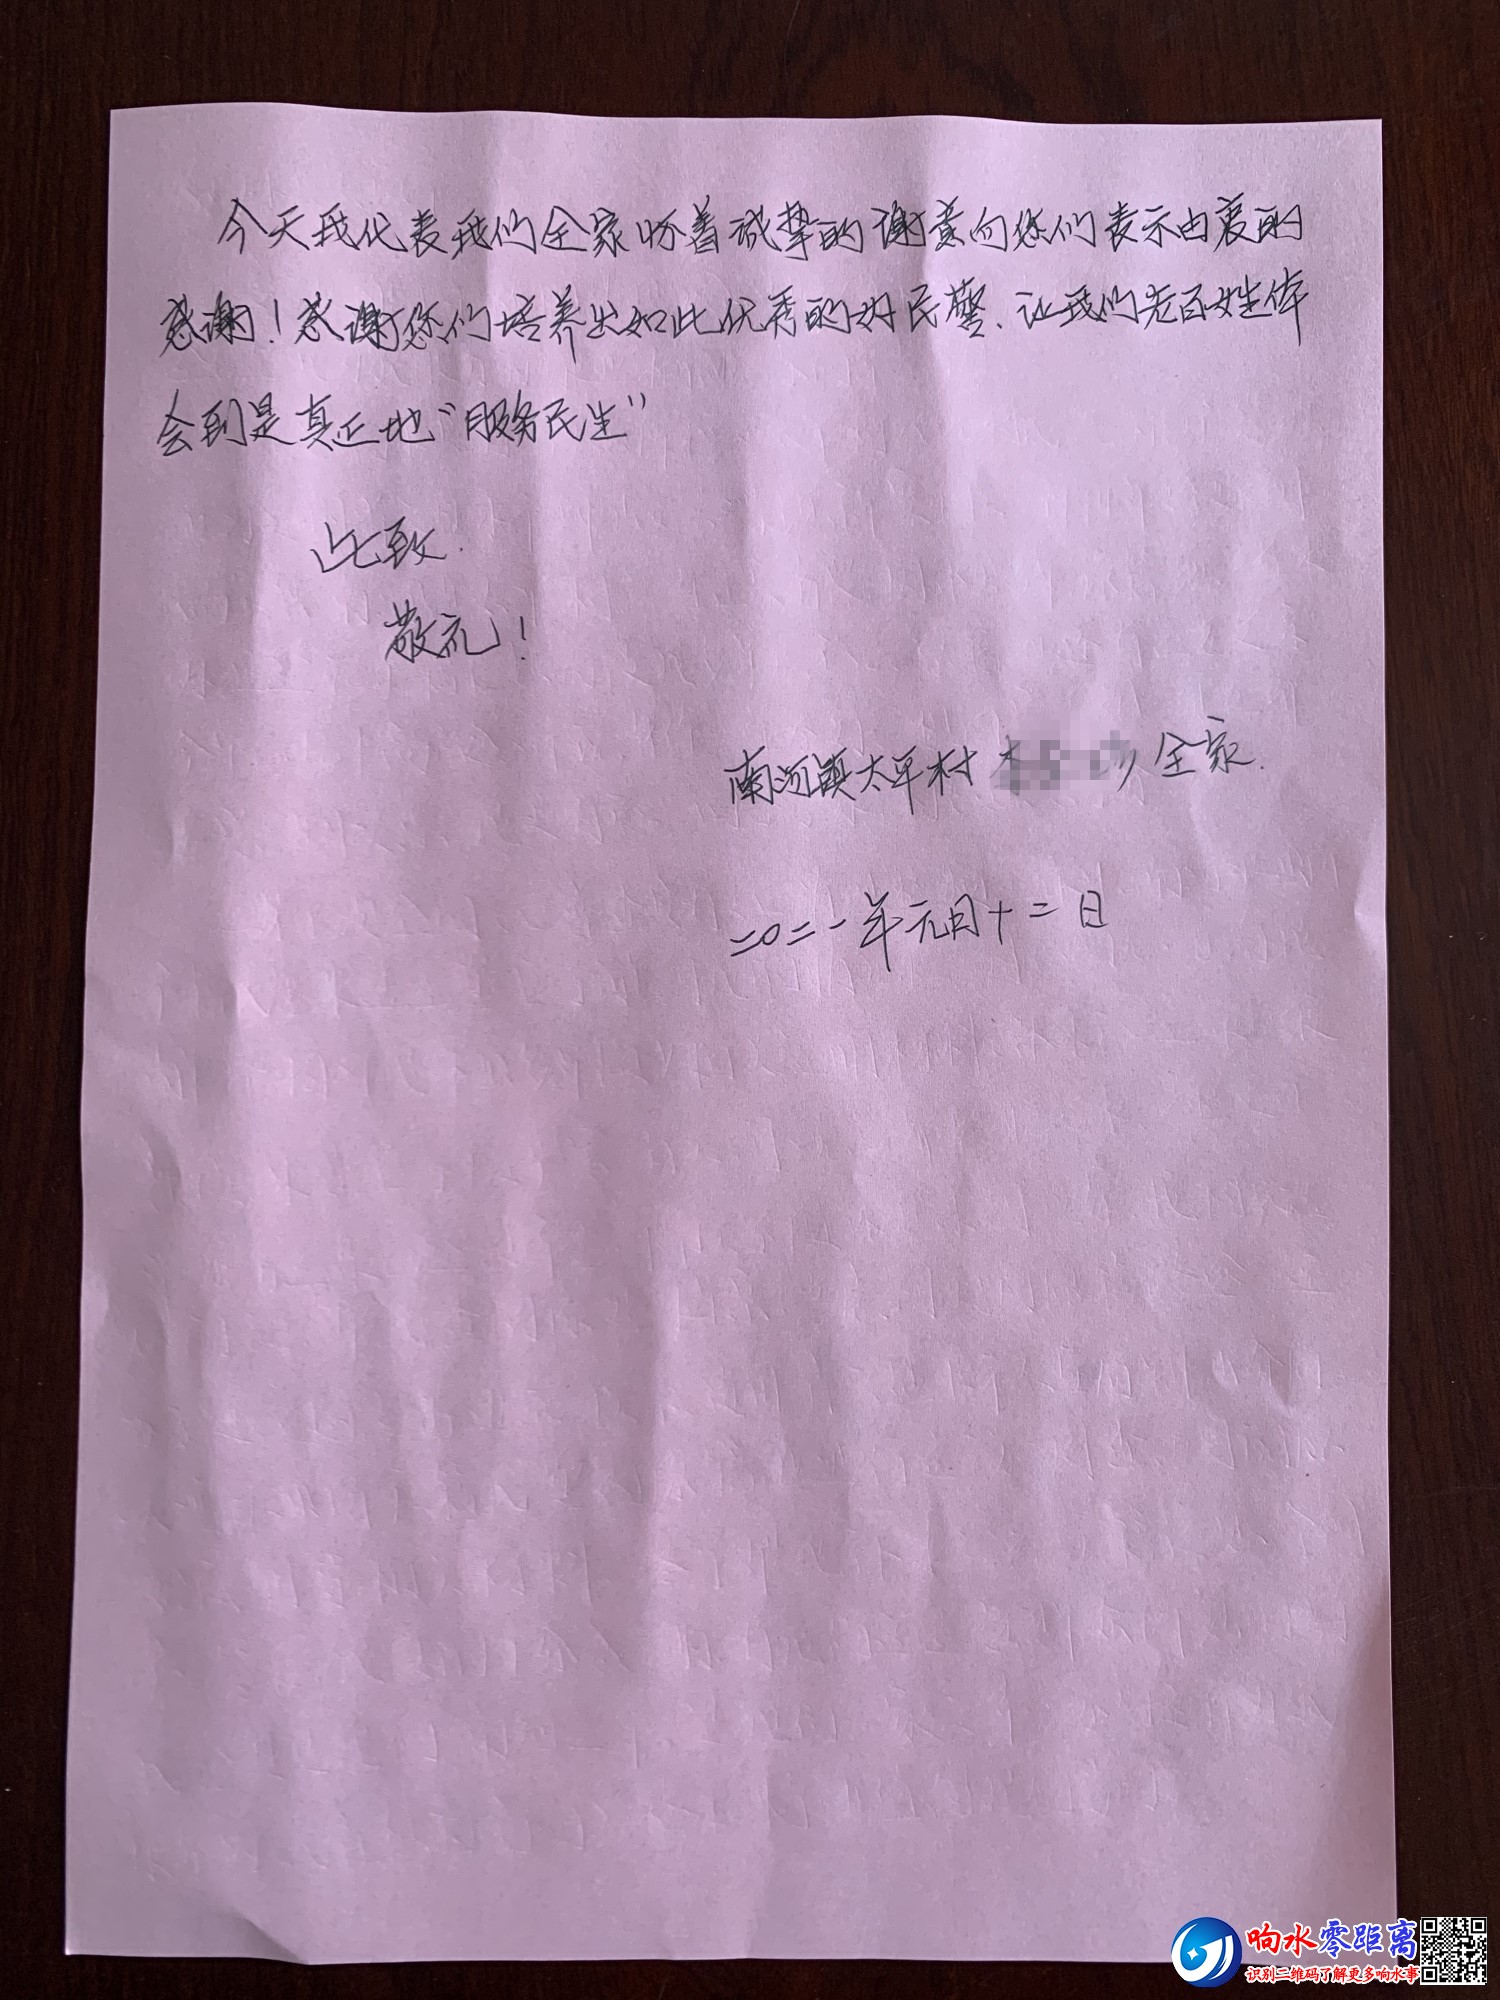 今天我代表我们全家怀着诚挚的谢意向您们表示由衷的
感谢！感谢您们培养出如此优秀的好民警、让我们老百姓体
会到是真正地“服务民生”
此致.
敬礼！
南河镇太平村 全家.
二〇二一年元月十二日
响水零距离
识别二维码了解更多响水事